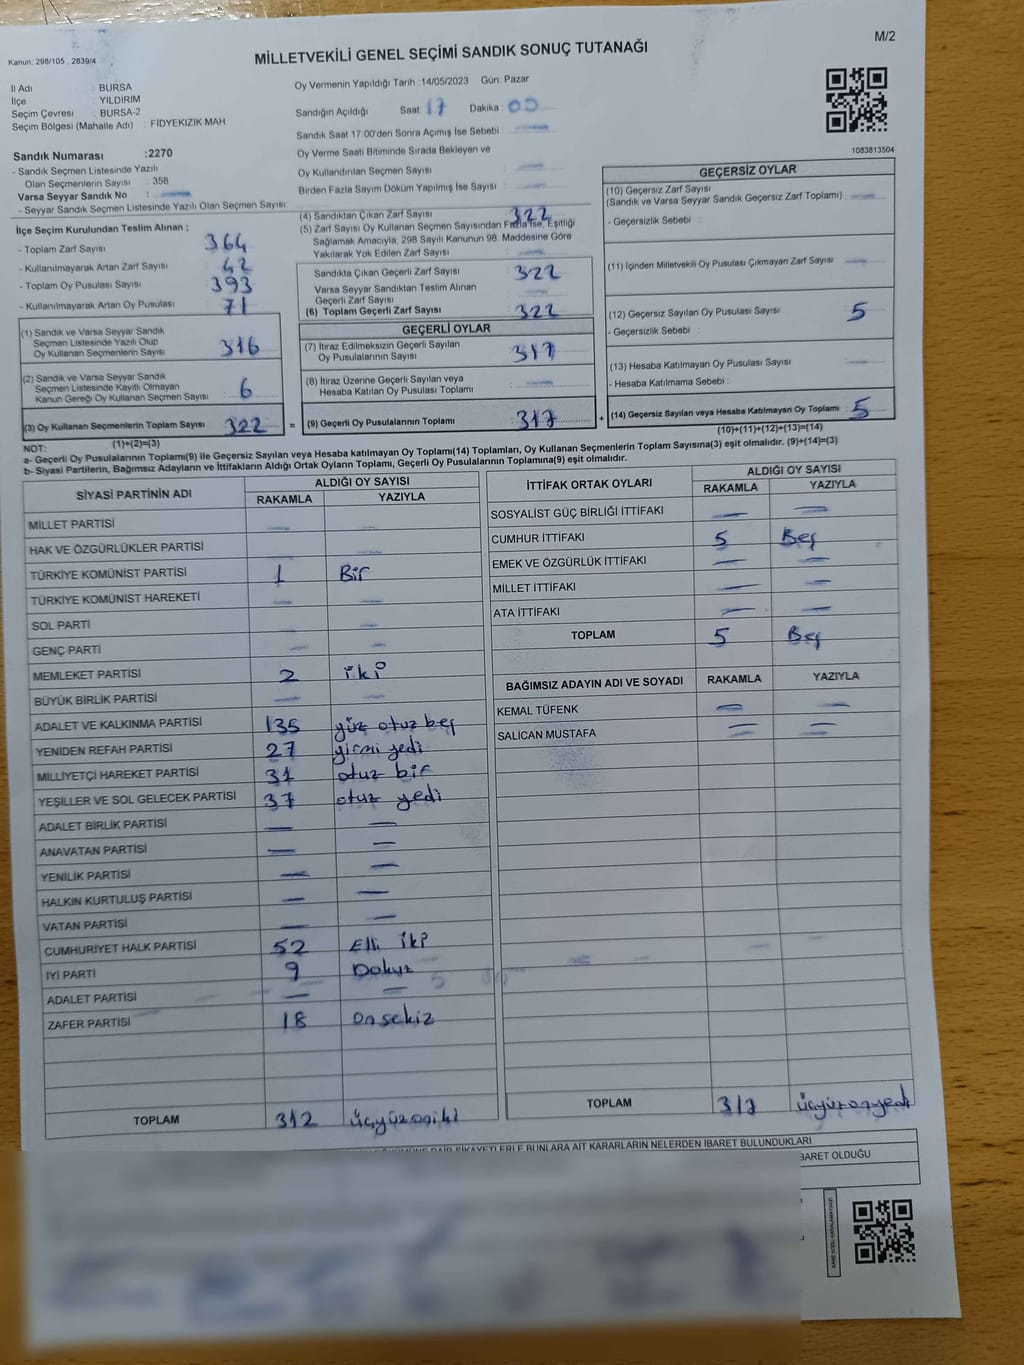 M/2
MİLLETVEKİLİ GENEL SEÇİMİ SANDIK SONUÇ TUTANAĞI
Kanun, 298/105 , 2839/4
İl Adı : BURSA
İlçe : YILDIRIM
Seçim Çevresi : BURSA-2
Seçim Bölgesi (Mahalle Adı) : FİDYEKIZIK MAH.
Oy Vermenin Yapıldığı Tarih :14/05/2023 Gün: Pazar
Sandığın Açıldığı Saat : 17 Dakika : 00
Sandık Saat 17:00'den Sonra Açımış İse Sebebi :
Oy Verme Saati Bitiminde Sırada Bekleyen ve
Oy Kullandırılan Seçmen Sayısı :
Birden Fazla Sayım Döküm Yapılmış İse Sayısı :
1083813504
Sandık Numarası :2270
- Sandık Seçmen Listesinde Yazılı
Olan Seçmenlerin Sayısı : 358
Varsa Seyyar Sandık No :
- Seyyar Sandık Seçmen Listesinde Yazılı Olan Seçmen Sayısı:
İlçe Seçim Kurulundan Teslim Alınan ;
- Toplam Zarf Sayısı : 364
- Kullanılmayarak Artan Zarf Sayısı : 42
- Toplam Oy Pusulası Sayısı : 393
- Kullanılmayarak Artan Oy Pusulası : 71
(1) Sandık ve Varsa Seyyar Sandık
Seçmen Listesinde Yazılı Olup
Oy Kullanan Seçmenlerin Sayısı : 316
(2) Sandık ve Varsa Seyyar Sandık
Seçmen Listesinde Kayıtlı Olmayan
Kanun Gereği Oy Kullanan Seçmen Sayısı : 6
(3) Oy Kullanan Seçmenlerin Toplam Sayısı : 322
(1)+(2)=(3)
(4) Sandıktan Çıkan Zarf Sayısı : 322
(5) Zarf Sayısı Oy Kullanan Seçmen Sayısından Fazla ise, Eşitliği
Sağlamak Amacıyla, 298 Sayılı Kanunun 98. Maddesine Göre
Yakılarak Yok Edilen Zarf Sayısı :
Sandıkta Çıkan Geçerli Zarf Sayısı : 322
Varsa Seyyar Sandıktan Teslim Alınan
Geçerli Zarf Sayısı :
(6) Toplam Geçerli Zarf Sayısı : 322
GEÇERLİ OYLAR
(7) İtiraz Edilmeksizin Geçerli Sayılan
Oy Pusulalarının Sayısı : 317
(8) İtiraz Üzerine Geçerli Sayılan veya
Hesaba Katılan Oy Pusulası Toplamı :
= (9) Geçerli Oy Pusulalarının Toplamı : 317
GEÇERSİZ OYLAR
(10) Geçersiz Zarf Sayısı
(Sandık ve Varsa Seyyar Sandık Geçersiz Zarf Toplamı) :
- Geçersizlik Sebebi :
(11) İçinden Milletvekili Oy Pusulası Çıkmayan Zarf Sayısı :
(12) Geçersiz Sayılan Oy Pusulası Sayısı : 5
- Geçersizlik Sebebi :
(13) Hesaba Katılmayan Oy Pusulası Sayısı :
- Hesaba Katılmama Sebebi :
+ (14) Geçersiz Sayılan veya Hesaba Katılmayan Oy Toplamı : 5
(10)+(11)+(12)+(13)=(14)
NOT:
a- Geçerli Oy Pusulalarının Toplamı(9) ile Geçersiz Sayılan veya Hesaba katılmayan Oy Toplamı(14) Toplamları, Oy Kullanan Seçmenlerin Toplam Sayısına(3) eşit olmalıdır. (9)+(14)=(3)
b- Siyasi Partilerin, Bağımsız Adayların ve İttifakların Aldığı Ortak Oyların Toplamı, Geçerli Oy Pusulalarının Toplamına(9) eşit olmalıdır.
SİYASİ PARTİNİN ADI ALDIĞI OY SAYISI
RAKAMLA YAZIYLA
MİLLET PARTİSİ
HAK VE ÖZGÜRLÜKLER PARTİSİ
TÜRKİYE KOMÜNİST PARTİSİ 1 Bir
TÜRKİYE KOMÜNİST HAREKETİ
SOL PARTİ
GENÇ PARTİ
MEMLEKET PARTİSİ 2 iki
BÜYÜK BİRLİK PARTİSİ
ADALET VE KALKINMA PARTİSİ 135 yüz otuz beş
YENİDEN REFAH PARTİSİ 27 yirmi yedi
MİLLİYETÇİ HAREKET PARTİSİ 31 otuz bir
YEŞİLLER VE SOL GELECEK PARTİSİ 37 otuz yedi
ADALET BİRLİK PARTİSİ
ANAVATAN PARTİSİ
YENİLİK PARTİSİ
HALKIN KURTULUŞ PARTİSİ
VATAN PARTİSİ
CUMHURİYET HALK PARTİSİ 52 Elli iki
İYİ PARTİ 9 Dokuz
ADALET PARTİSİ
ZAFER PARTİSİ 18 onsekiz
TOPLAM 312 üçyüzoniki
İTTİFAK ORTAK OYLARI ALDIĞI OY SAYISI
RAKAMLA YAZIYLA
SOSYALİST GÜÇ BİRLİĞİ İTTİFAKI
CUMHUR İTTİFAKI 5 Beş
EMEK VE ÖZGÜRLÜK İTTİFAKI
MİLLET İTTİFAKI
ATA İTTİFAKI
TOPLAM 5 Beş
BAĞIMSIZ ADAYIN ADI VE SOYADI RAKAMLA YAZIYLA
KEMAL TÜFENK
SALİCAN MUSTAFA
TOPLAM 317 üçyüzonyedi
ŞİKAYETLERLE BUNLARA AİT KARARLARIN NELERDEN İBARET BULUNDUKLARI
BARET OLDUĞU